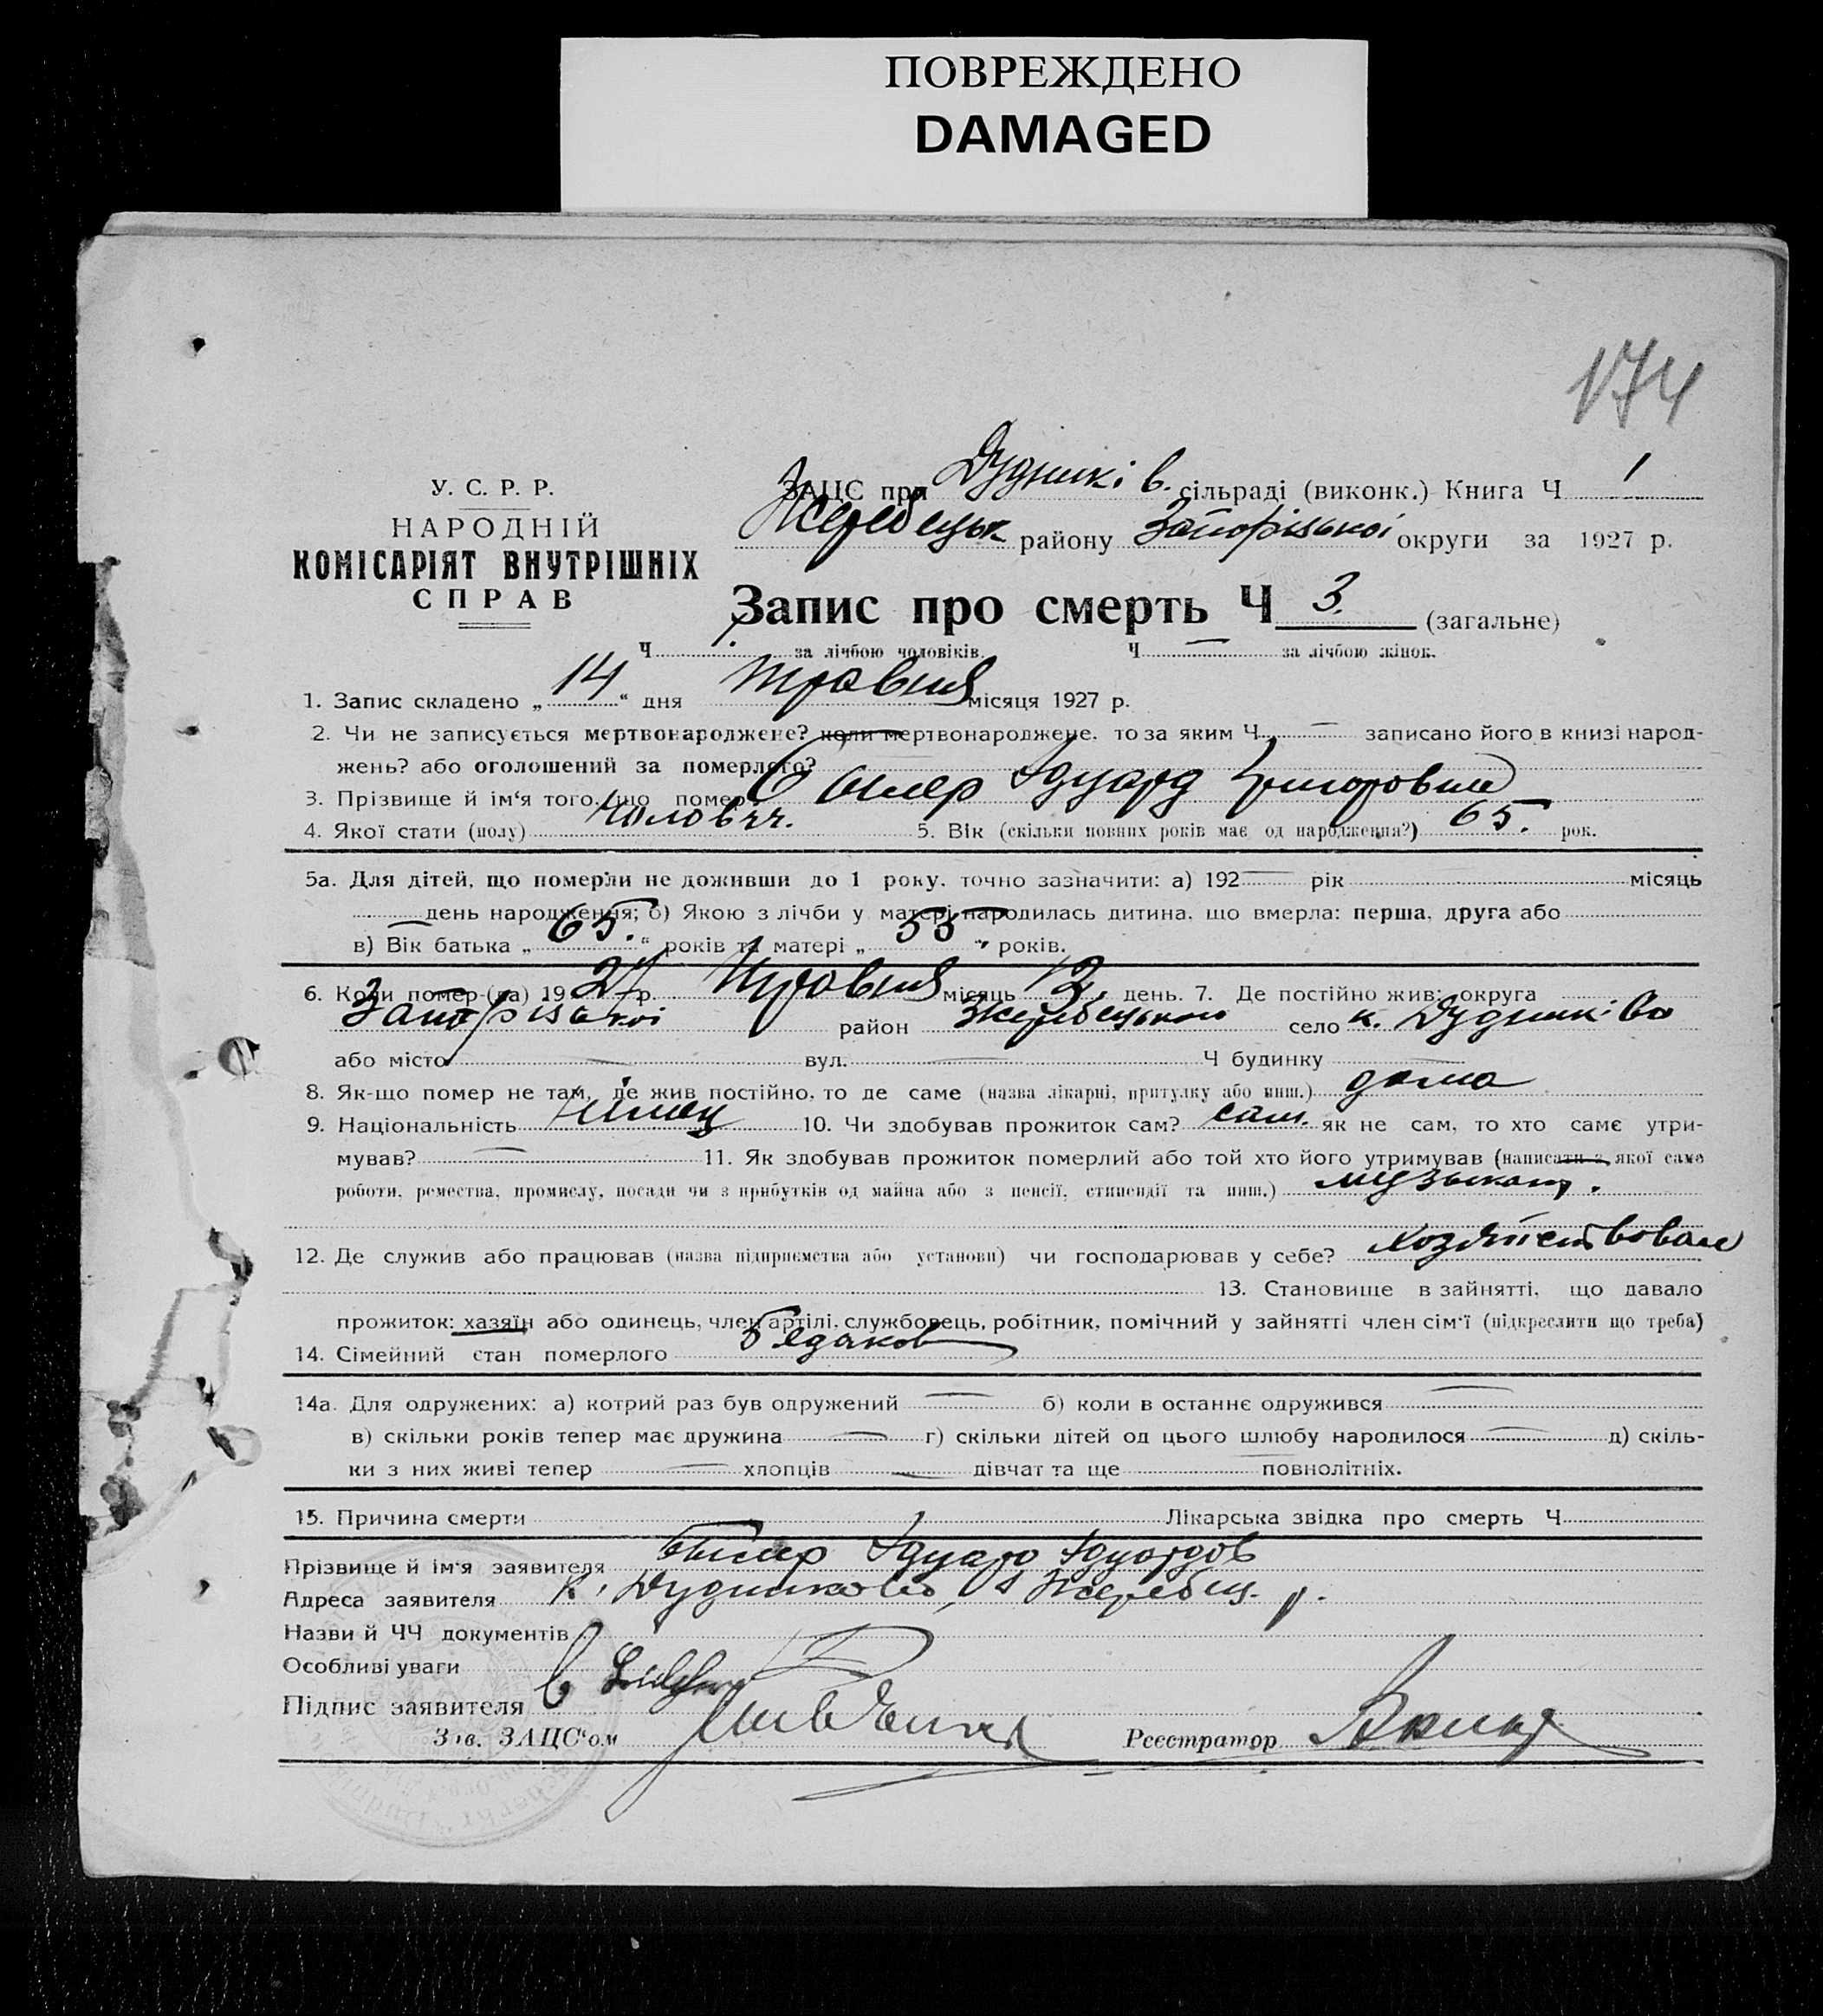 ПОВРЕЖДЕНО
DAMAGED
174
У. С. Р. Р.
НАРОДНІЙ
КОМІСАРІЯТ ВНУТРІШНІХ
СПРАВ
ЗАЦС при Дудникі в. сільраді (виконк.) Книга Ч 1
Жеребецьк району Запорізькоі округи за 1927 р.
Запис про смерть Ч 3. (загальне)
Ч 1. за лічбою чоловіків. Ч — за лічбою жінок.
1. Запис складено „14“ дня травня місяця 1927 р.
2. Чи не записується мертвонароджене? коли мертвонароджене, то за яким Ч — записано його в книзі народ-
жень? або оголошений за померлого?
3. Прізвище й ім‘я того, що помер Едуард Григорович
4. Якої стати (полу) чоловіч. 5. Вік (скільки повних років має од народження?) 65. рок.
5а. Для дітей, що померли не доживши до 1 року, точно зазначити: а) 192— рік місяць
— день народження; б) Якою з лічби у матері народилась дитина, що вмерла: перша, друга або
в) Вік батька „65.“ років та матері „55“ років.
6. Коли помер-(ла) 1927 р. травня місяць 12. день. 7. Де постійно жив: округа
Запорізькоі район Жеребецького село к. Дудниково
або місто — вул. — Ч будинку —
8. Як-що помер не там, де жив постійно, то де саме (назва лікарні, притулку або инш.) дома
9. Національність німец 10. Чи здобував прожиток сам? сам. як не сам, то хто саме утри-
мував? — 11. Як здобував прожиток померлий або той хто його утримував (написати з якої саме
роботи, ремества, промислу, посади чи з прибутків од майна або з пенсії, стипендії та инш.) музыкант.
12. Де служив або працював (назва підприємства або установи) чи господарював у себе? хозяйствовал
13. Становище в зайнятті, що давало
прожиток: хазяїн або одинець, член артілі, службовець, робітник, помічний у зайнятті член сім‘ї (підкреслити що треба)
14. Сімейний стан померлого
14а. Для одружених: а) котрий раз був одружений — б) коли в останнє одружився —
в) скільки років тепер має дружина — г) скільки дітей од цього шлюбу народилося — д) скіль-
ки з них живі тепер — хлопців — дівчат та ще — повнолітніх.
15. Причина смерти Лікарська звідка про смерть Ч
Прізвище й ім‘я заявителя Едуард Едуардов
Адреса заявителя к. Дудниково, Жеребец. р.
Назви й ЧЧ документів
Особливі уваги
Підпис заявителя
Зав. ЗАЦС‘ом Реєстратор